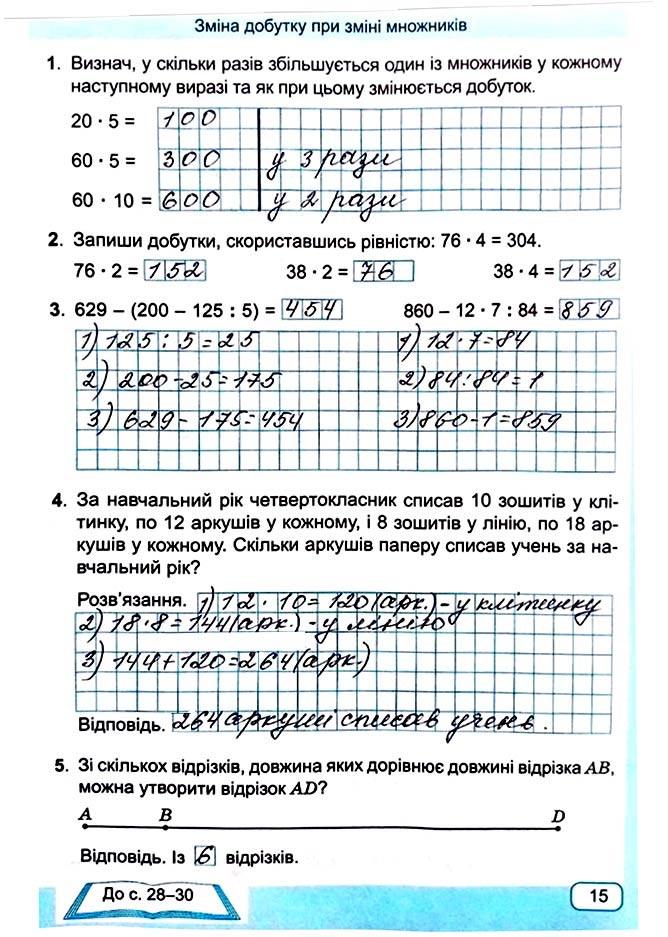 Зміна добутку при зміні множників
1. Визнач, у скільки разів збільшується один із множників у кожному
наступному виразі та як при цьому змінюється добуток.
20 · 5 = 100
60 · 5 = 300 у 3 рази
60 · 10 = 600 у 2 рази
2. Запиши добутки, скориставшись рівністю: 76 · 4 = 304.
76 · 2 = 152 38 · 2 = 76 38 · 4 = 152
3. 629 – (200 – 125 : 5) = 454 860 – 12 · 7 : 84 = 859
1) 125 : 5 = 25 1) 12 · 7 = 84
2) 200 - 25 = 175 2) 84 : 84 = 1
3) 629 - 175 = 454 3) 860 - 1 = 859
4. За навчальний рік четвертокласник списав 10 зошитів у клі-
тинку, по 12 аркушів у кожному, і 8 зошитів у лінію, по 18 ар-
кушів у кожному. Скільки аркушів паперу списав учень за на-
вчальний рік?
Розв'язання. 1) 12 · 10 = 120 (арк.) - у клітинку
2) 18 · 8 = 144 (арк.) - у лінію
3) 144 + 120 = 264 (арк.)
Відповідь. 264 аркуші списав учень.
5. Зі скількох відрізків, довжина яких дорівнює довжині відрізка AB,
можна утворити відрізок AD?
A B D
Відповідь. Із 6 відрізків.
До с. 28–30 15